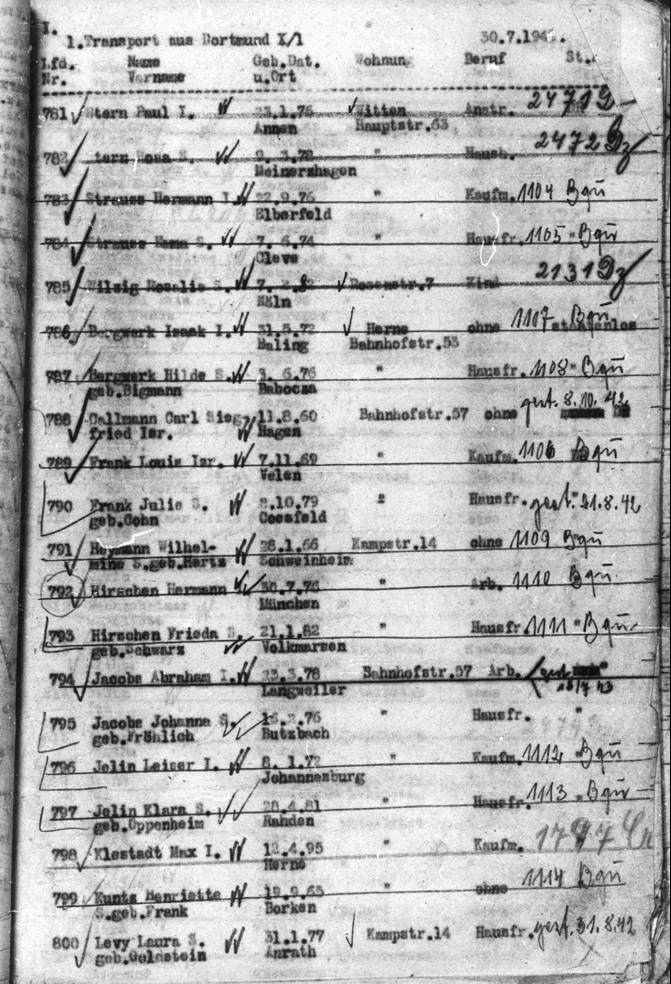 1.Transport aus Dortmund X/1 30.7.194
Lfd. Name Geb.Dat. Wohnung Beruf St.
Nr. Vorname u.Ort
781 Stern Paul I. 23.1.76 Witten Anstr. 24719
Annen Hauptstr.63
782 tern Rosa S. 9. 3.78 " Hausb. 2472
Meinerzhagen
783 Strauss Hermann I. 22.9.76 " Kaufm. 1104 Bqū
Elberfeld
784 Strauss Emma S. 7. 6.74 " Hausfr. 1105 " Bqū
Cleve
785 Wilzig Rosalie S. 7. Rosenstr.7 Kind 2131
Köln
786 Bergwerk Isaak I. 31.5.72 Herne ohne 1107 staatenlos Bqū
Baling Bahnhofstr.53
787 Bergwerk Hilde S. 3. 6.76 " Hausfr. 1108 " Bqū
geb.Sigmann Babocza
788 Callmann Carl Sieg 11.8.60 Bahnhofstr.57 ohne gest. 8.10.42
fried Isr. Hagen
789 Frank Louis Isr. 7.11.69 " Kaufm. 1106 Bqū
Velen
790 Frank Julie S. 2.10.79 " Hausfr. gest. 21.8.42
geb.Cohn Coesfeld
791 Heymann Wilhel- 28.1.66 Kampstr.14 ohne 1109 Bqū
mine S.geb.Hertz Schweinheim
792 Hirschen Hermann 30.7.76 " Arb. 1110 Bqū
München
793 Hirschen Frieda S. 21.1.82 " Hausfr. 1111 " Bqū
geb.Schwarz Volkmarsen
794 Jacobs Abraham I. 23.3.78 Bahnhofstr.57 Arb. gest "
Langweiler 43
795 Jacobs Johanna S. 16.2.76 " Hausfr. "
geb.Fröhlich Butzbach
796 Jelin Leiser I. 8. 1.72 " Kaufm. 1112 Bqū
Johannesburg
797 Jelin Klara S. 28.4.81 " Hausfr. 1113 " Bqū
geb.Oppenheim Rahden
798 Klestadt Max I. 12.4.95 " Kaufm. 1797
Herne
799 Kuntz Henriette 19.9.65 " ohne 1114 Bqū
S.geb.Frank Borken
800 Levy Laura S. 31.1.77 Kampstr.14 Hausfr. gest. 31.8.42
geb.Goldstein Anrath